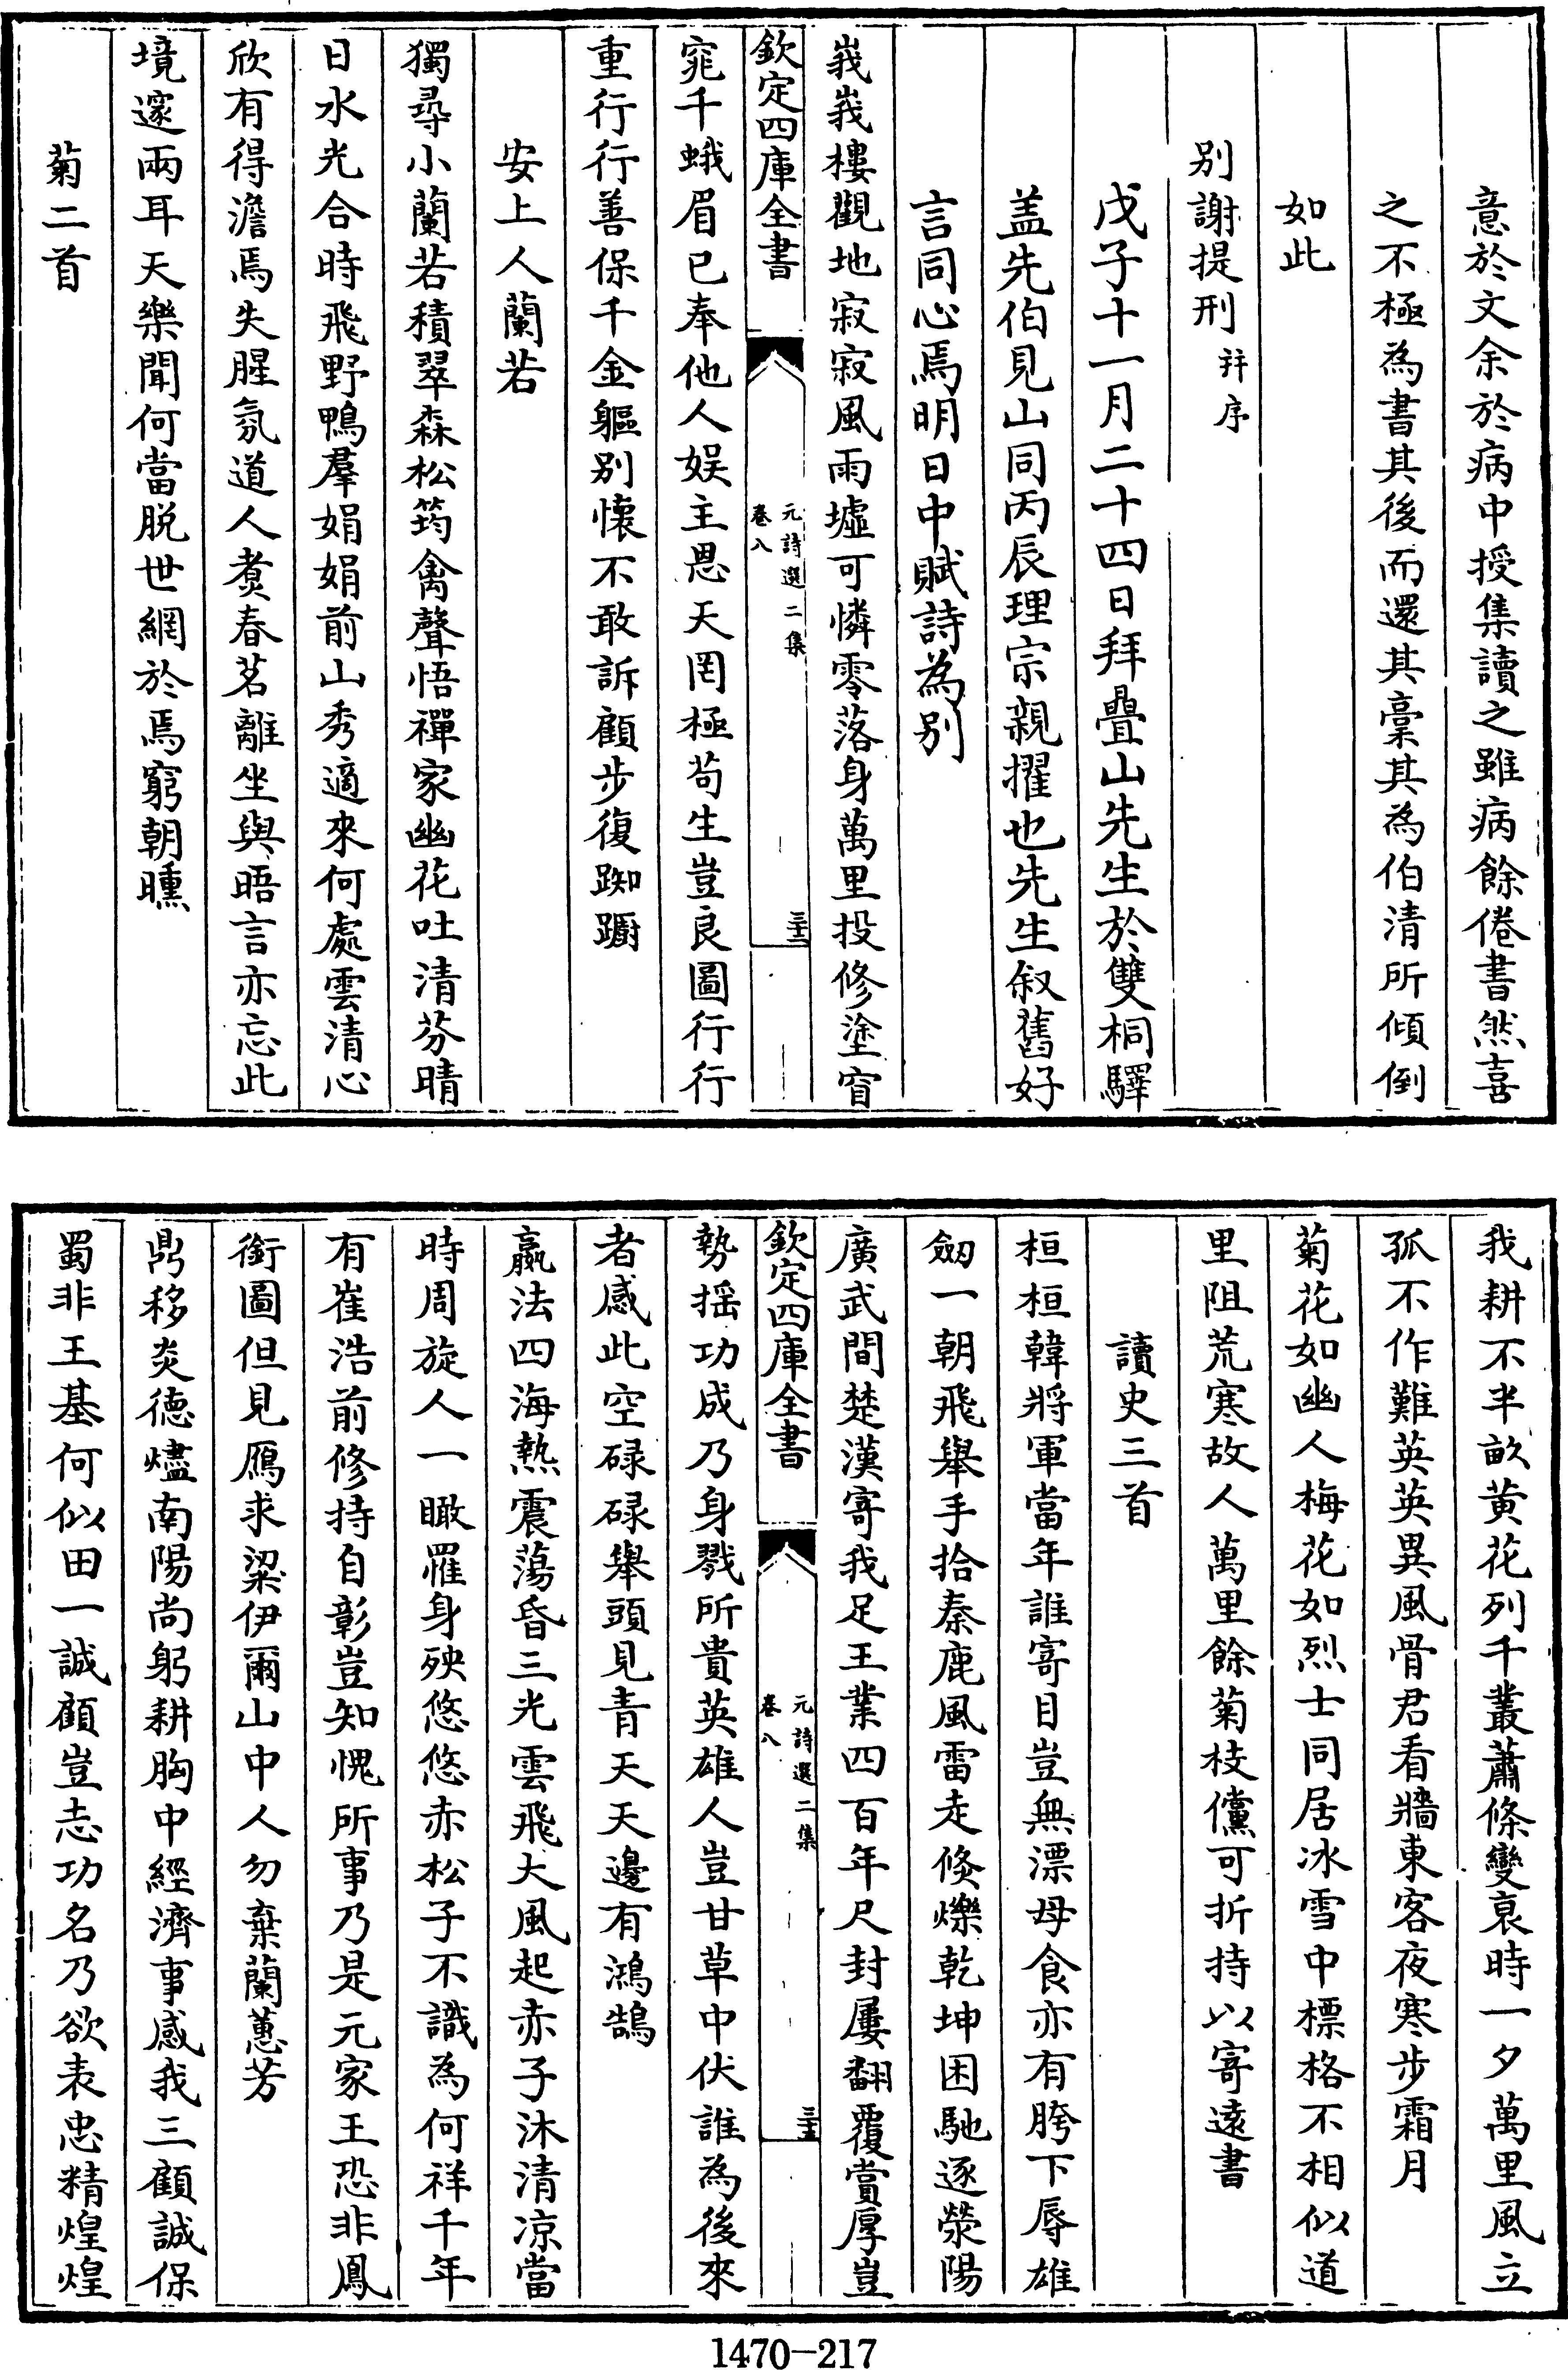 意於文余於病中授集讀之雖病餘倦書然喜
之不極為書其後而還其稾其為伯清所傾倒
如此
别謝提刑 并序
戊子十一月二十四日拜疊山先生於雙桐驛
盖先伯見山同丙辰理宗親擢也先生叙舊好
言同心焉明日中賦詩為别
峩峩樓觀地寂寂風雨墟可憐零落身萬里投修塗窅
欽定四庫全書
元詩選二集
卷八
三十三
窕千蛾眉已奉他人娱主恩天罔極苟生豈良圖行行
重行行善保千金軀别懷不敢訴顧步復踟躕
安上人蘭若
獨尋小蘭若積翠森松筠禽聲悟禪家幽花吐清芬晴
日水光合時飛野鴨羣娟娟前山秀適來何處雲清心
欣有得澹焉失腥氛道人煑春茗離坐與晤言亦忘此
境邃兩耳天樂聞何當脱世網於焉窮朝曛
菊二首
我耕不半畝黄花列千叢蕭條變衰時一夕萬里風立
孤不作難英英異風骨君看牆東客夜寒步霜月
菊花如幽人梅花如烈士同居冰雪中標格不相似道
里阻荒寒故人萬里餘菊枝儻可折持以寄遠書
讀史三首
桓桓韓將軍當年誰寄目豈無漂母食亦有胯下辱雄
劒一朝飛舉手拾秦鹿風雷走倐爍乾坤困馳逐滎陽
廣武間楚漢寄我足王業四百年尺封屢翻覆賞厚豈
欽定四庫全書
元詩選二集
卷八
三十五
勢揺功成乃身戮所貴英雄人豈甘草中伏誰為後來
者感此空碌碌舉頭見青天天邊有鴻鵠
嬴法四海熱震蕩昏三光雲飛大風起赤子沐清凉當
時周旋人一瞰罹身殃悠悠赤松子不識為何祥千年
有崔浩前修持自彰豈知愧所事乃是元家王恐非鳳
銜圖但見鴈求粱伊爾山中人勿棄蘭蕙芳
鼎移炎德燼南陽尚躬耕胸中經濟事感我三顧誠保
蜀非王基何似田一誠顧豈志功名乃欲表忠精煌煌
1470-217